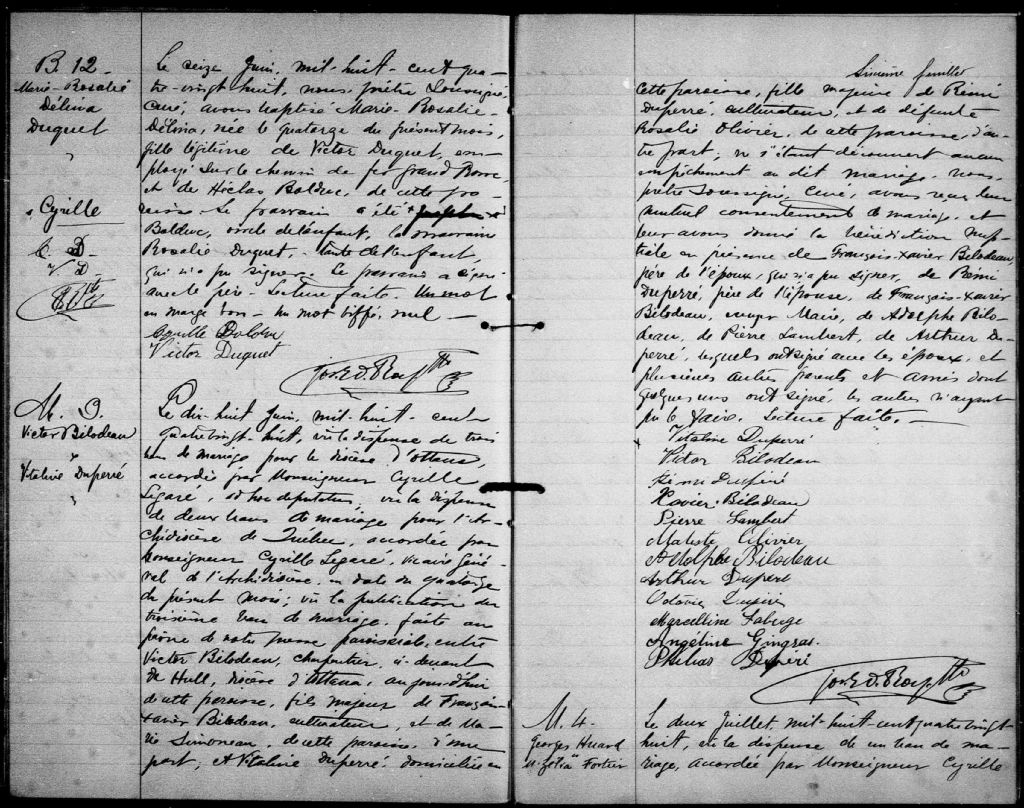 B. 12
Marie-Rosalie
Délina
Duquet
Le seize Juin, mil-huit-cent qua-
tre-vingt huit, nous, prêtre soussigné
curé, avons baptisé Marie-Rosalie-
Délina, née le quatorze du présent mois,
fille légitime de Victor Duquet, em-
ployé sur le chemin de fer Grand Tronc,
et de Bolduc, de cette pa-
roisse. Le parrain a été Joseph
Bolduc, oncle de l'enfant, la marraine
Rosalie Duquet, tante de l'enfant,
qui n'a pu signer. Le parrain a signé
avec le père. Lecture faite. Un mot
en marge bon - Un mot biffé, nul -
Cyrille
C. D
V. D
Cyrille Bolduc
Victor Duquet
M. 3.
Victor Bilodeau
&
Vitaline Duperré
Le dix-huit Juin, mil-huit-cent
quatre vingt-huit, vu la dispense de trois
bans de mariage pour le diocèse d'Ottawa,
accordée par Monseigneur Cyrille
Legaré, ad hoc deputatus, vu la dispense
de deux bans de mariage pour l'Ar-
chidiocèse de Québec, accordée par
Monseigneur Cyrille Legaré, Vicaire Géné-
ral de l'Archidiocèse, en date du quatorze
du présent mois; vu la publication du
troisième ban de mariage, faite au
prône de notre messe paroissiale, entre
Victor Bilodeau, charpentier, ci-devant
de Hull, diocèse d'Ottawa, aujourd'hui
de cette paroisse, fils majeur de François-
Xavier Bilodeau, cultivateur, et de Ma-
rie Simoneau, de cette paroisse, d'une
part; et Vitaline Duperré domiciliée en
Sixième feuillet
cette paroisse, fille majeure de Rémi
Duperré, cultivateur, et de défunte
Rosalie Olivier, de cette paroisse d'au-
tre part; ne s'étant découvert aucun
empêchement au dit mariage, nous,
prêtre soussigné, Curé, avons reçu leur
mutuel consentement de mariage, et
leur avons donné la bénédiction nup-
tiale en présence de François-Xavier Bilodeau,
père de l'époux, qui n'a pu signer, de Rémi
Duperré, père de l'épouse, de François-Xavier
Bilodeau, Maire, de Adolphe Bilo-
deau, de Pierre Lambert, de Arthur Du-
perré, lesquels ont signé avec les époux, et
plusieurs autres parents et amis dont
quelques uns ont signé, les autres n'ayant
pu le faire. Lecture faite. -
Vitaline Duperré
Victor Bilodeau
Rémi Duperré
Xavier Bilodeau
Pierre Lambert
Olivier
Adolphe Bilodeau
Arthur Duperé
Marcelline
Angéline Gingras.
Philias Duperé
M. 4.
Georges Huard
& Zélia Fortier
Le deux Juillet, mil-huit-cent quatre vingt-
huit, vu la dispense de un ban de ma-
riage, accordée par Monseigneur Cyrille